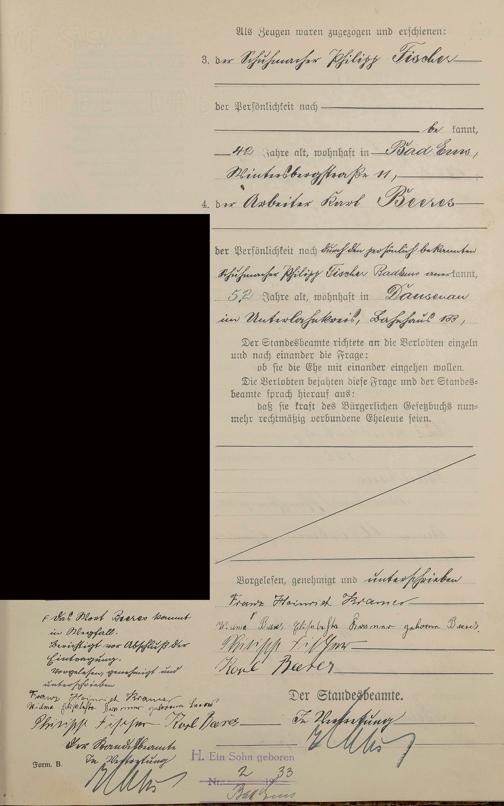 Als Zeugen waren zugezogen und erschienen:
3. der Schuhmacher Philipp Fischer
der Persönlichkeit nach
be kannt,
42 Jahre alt, wohnhaft in Bad Ems,
Wintersbergstraße 11,
4. der Arbeiter Karl Beeres
der Persönlichkeit nach durch den persönlich bekannten
Schuhmacher Philipp Fischer Bad Ems anerkannt,
52 Jahre alt, wohnhaft in Dausenau
im Unterlahnkreis, Bahnhaus 133,
Der Standesbeamte richtete an die Verlobten einzeln
und nach einander die Frage:
ob sie die Ehe mit einander eingehen wollen.
Die Verlobten bejahten diese Frage und der Standes-
beamte sprach hierauf aus:
daß sie kraft des Bürgerlichen Gesetzbuchs nun-
mehr rechtmäßig verbundene Eheleute seien.
Vorgelesen, genehmigt und unterschrieben
Franz Heinrich Kramer
Elisabetha Kramer geborene
Philipp Fischer
Karl
Der Standesbeamte.
In Vertretung
F das Wort Beeres kommt
in Wegfall.
Berichtigt vor Abschluß der
Eintragung.
Vorgelesen, genehmigt und
unterschrieben
Franz Heinrich Kramer
Elisabetha Kramer geborene
Philipp Fischer Karl
Der Standesbeamte
In Vertretung
Form. B.
H. Ein Sohn geboren
Nr. 2 1933
Bad Ems